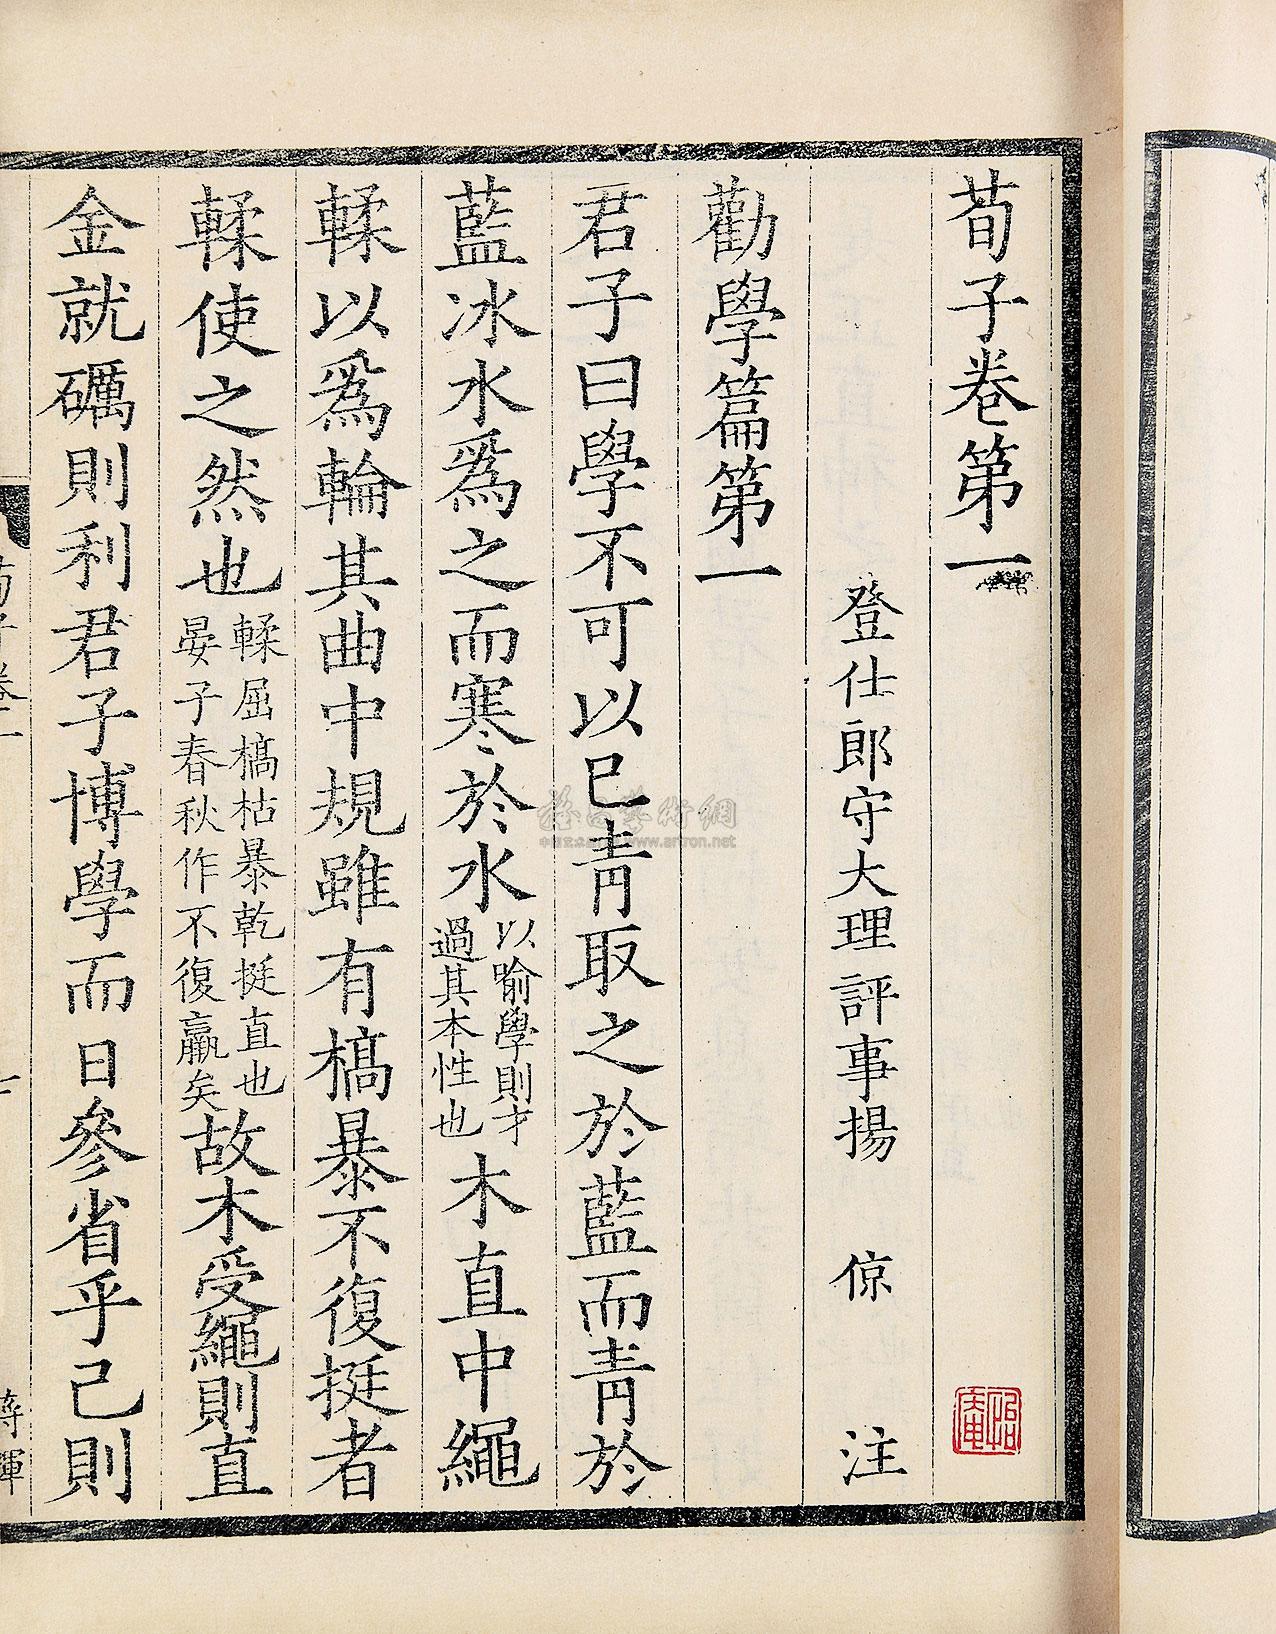 荀子卷第一
登仕郎守大理評事揚 倞 注
勸學篇第一
君子曰學不可以已青取之於藍而青於
藍冰水爲之而寒於水以喻學則才過其本性也木直中繩
輮以爲輪其曲中規雖有槁暴不復挺者
輮使之然也輮屈槁枯暴乾挺直也晏子春秋作不復贏矣故木受繩則直
金就礪則利君子博學而日參省乎己則
荀子卷一
www.artron.net